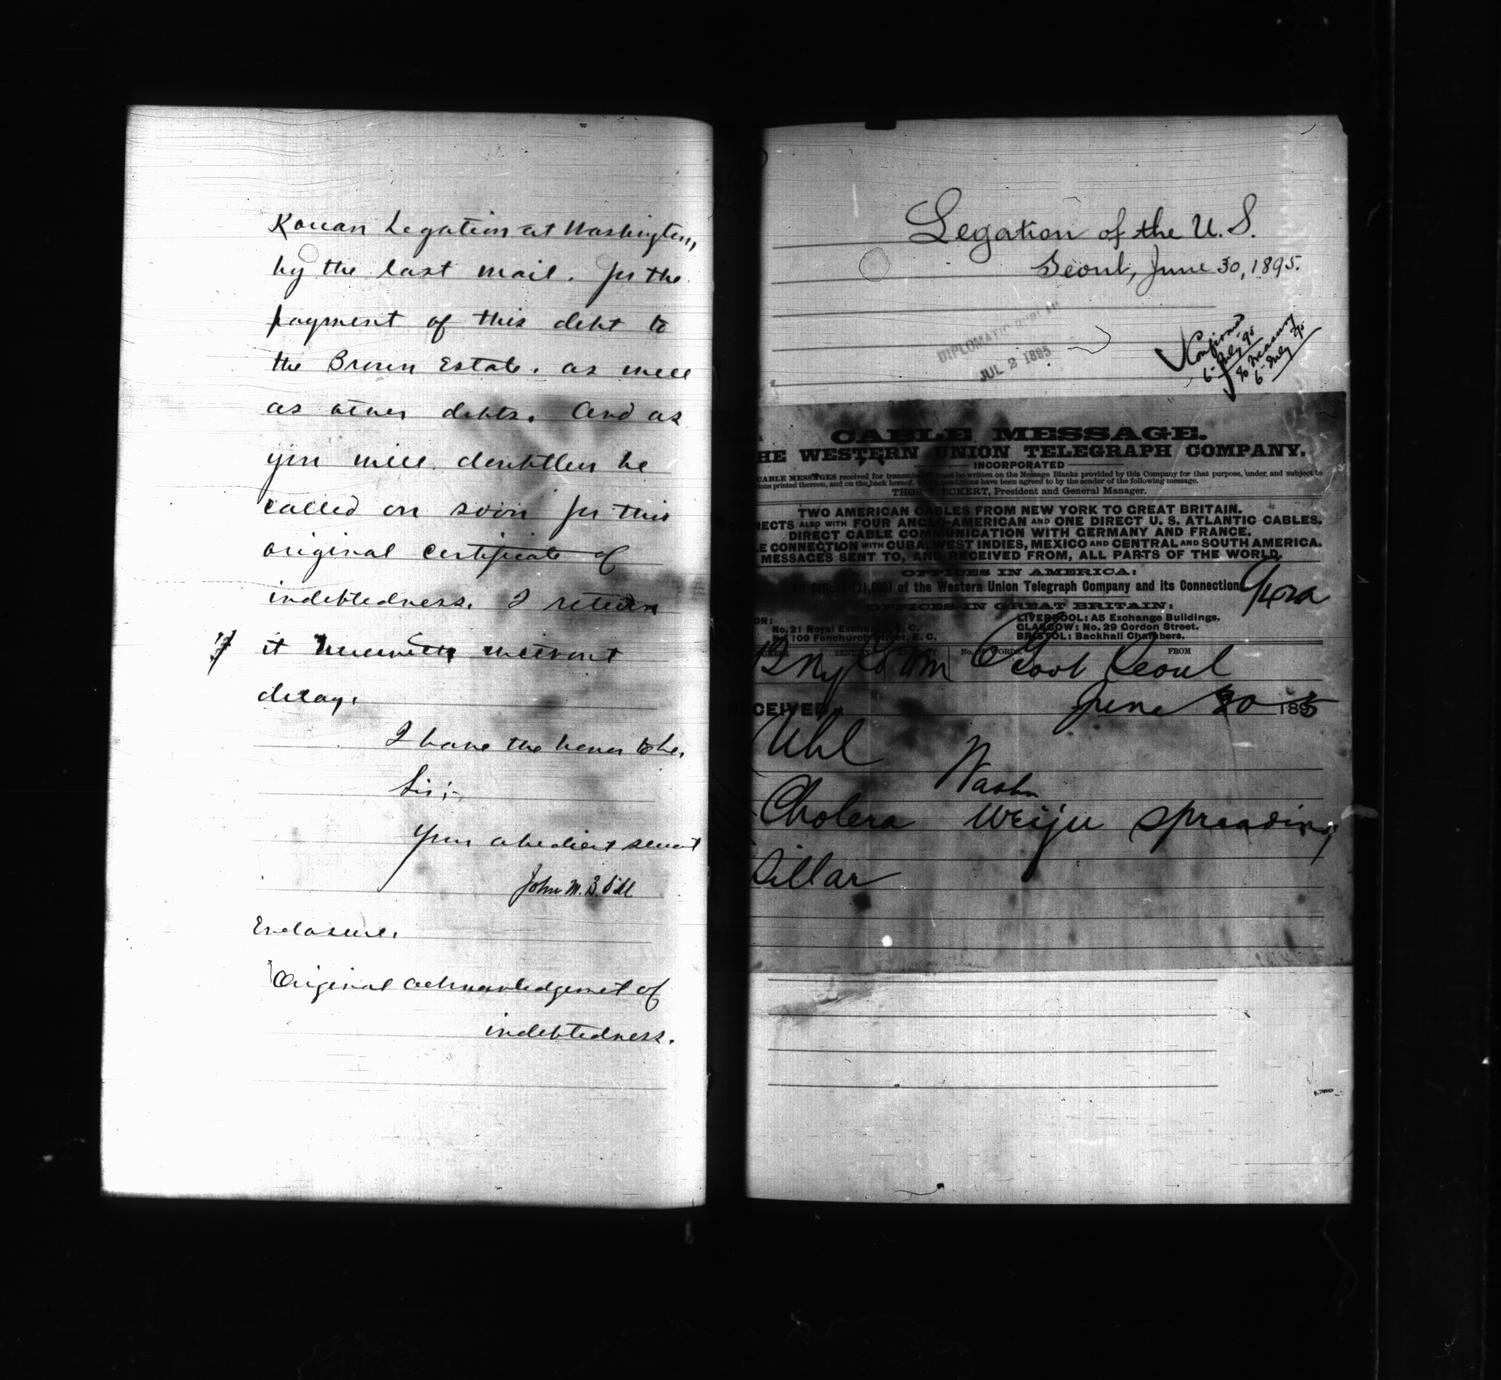 Korean Legation at Washington,
by the last mail. for the
payment of this debt to
the Brown Estate. as well
as other debts. And as
you will doubtless be
called on soon for this
original certificate of
indebtedness. I return
it herewith without
delay.
I have the honor to be,
Sir;
Your obedient servant
John M. B. Sill
Enclosure.
Original acknowledgement of
indebtedness.
Legation of the U.S.
Seoul, June 30, 1895.
DIPLOMATIC
JUL 2 1895
Confirmed
6 July 95
To Treasury
6 July 95
CABLE MESSAGE.
HE WESTERN UNION TELEGRAPH COMPANY.
INCORPORATED
CABLE MESSAGES received for transmission must be written on the Message Blanks provided by this Company for that purpose, under, and subject to
conditions printed thereon, and on the back hereof, conditions have been agreed to by the sender of the following message.
THOS. T. ECKERT, President and General Manager.
TWO AMERICAN CABLES FROM NEW YORK TO GREAT BRITAIN.
NNECTS ALSO WITH FOUR ANGLO-AMERICAN AND ONE DIRECT U. S. ATLANTIC CABLES.
DIRECT CABLE COMMUNICATION WITH GERMANY AND FRANCE.
LE CONNECTION WITH CUBA, WEST INDIES, MEXICO AND CENTRAL AND SOUTH AMERICA.
MESSAGES SENT TO, AND RECEIVED FROM, ALL PARTS OF THE WORLD.
OFFICES IN AMERICA:
All Offices (21,000) of the Western Union Telegraph Company and its Connections
OFFICES IN GREAT BRITAIN:
LIVERPOOL: A5 Exchange Buildings.
No. 21 Royal Exchange, E. C.
GLASGOW: No. 29 Gordon Street.
No. 109 Fenchurch Street, E. C.
BRISTOL: Backhall Chambers.
FROM
Govt Seoul
RECEIVED
June 30 1895
Uhl
Washn
Cholera Weiju spreading
Sillar